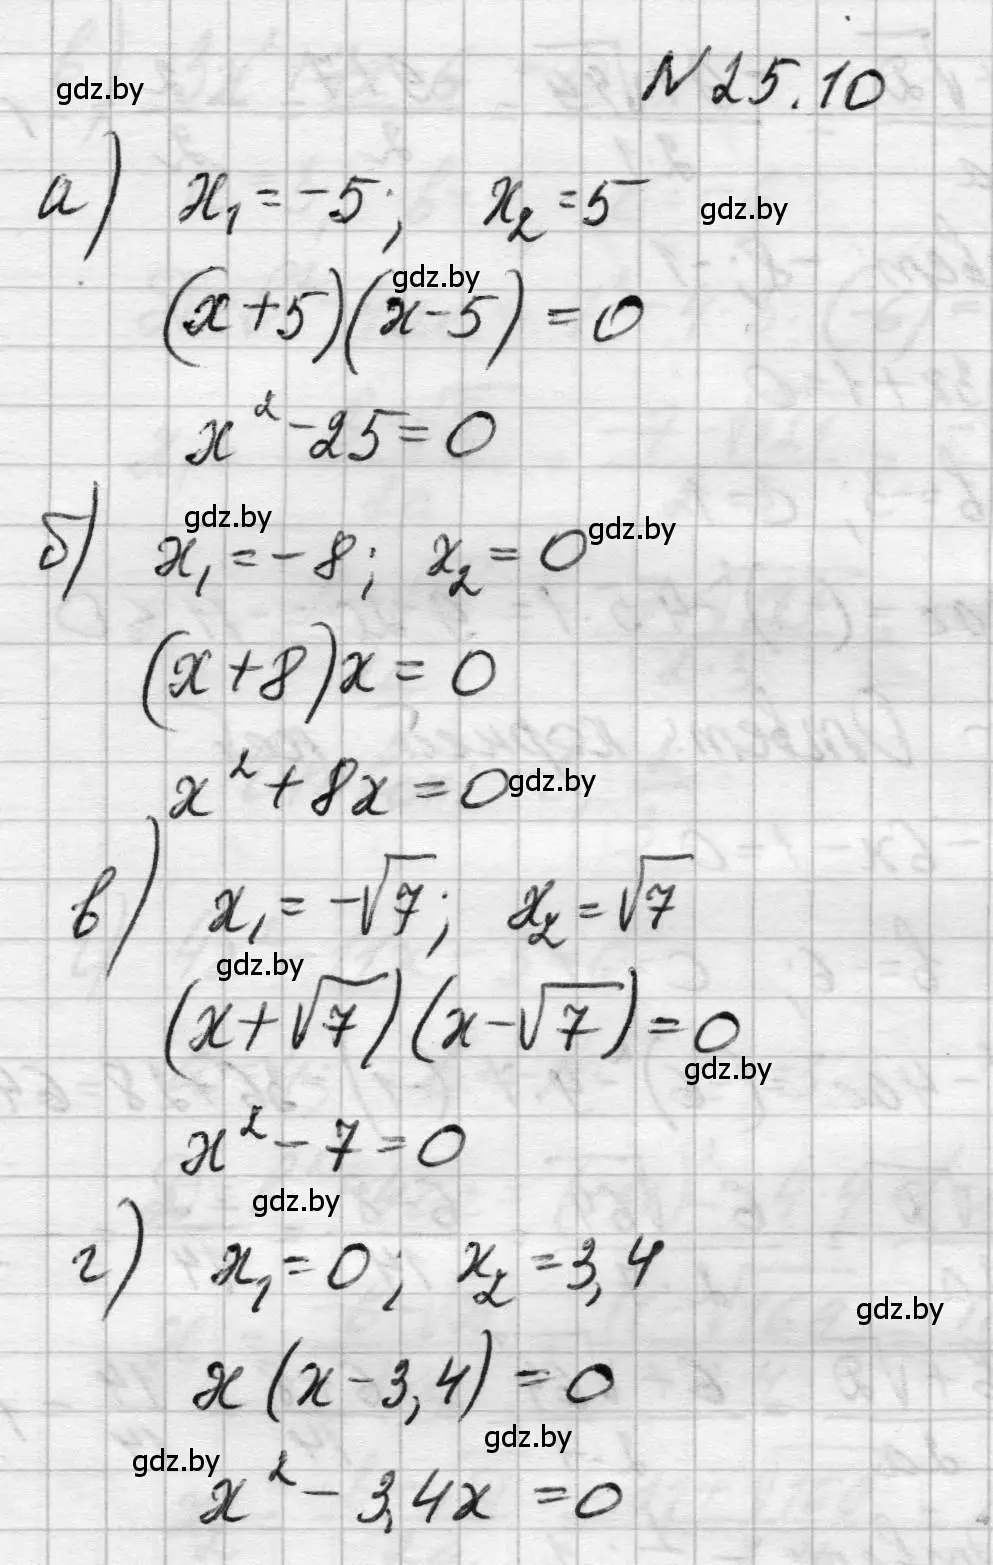 gdz.by
N 25.10
а) x₁ = -5; x₂ = 5 gdz.by
gdz.by
(x+5)(x-5) = 0
x² - 25 = 0
gdz.by gdz.by
б) x₁ = -8; x₂ = 0
(x+8)x = 0
x² + 8x = 0 gdz.by
в) x₁ = -√7; x₂ = √7
gdz.by
(x+√7)(x-√7) = 0
gdz.by
x² - 7 = 0
gdz.by
г) x₁ = 0; x₂ = 3,4
gdz.by
x(x-3,4) = 0
gdz.by
gdz.by
x² - 3,4x = 0